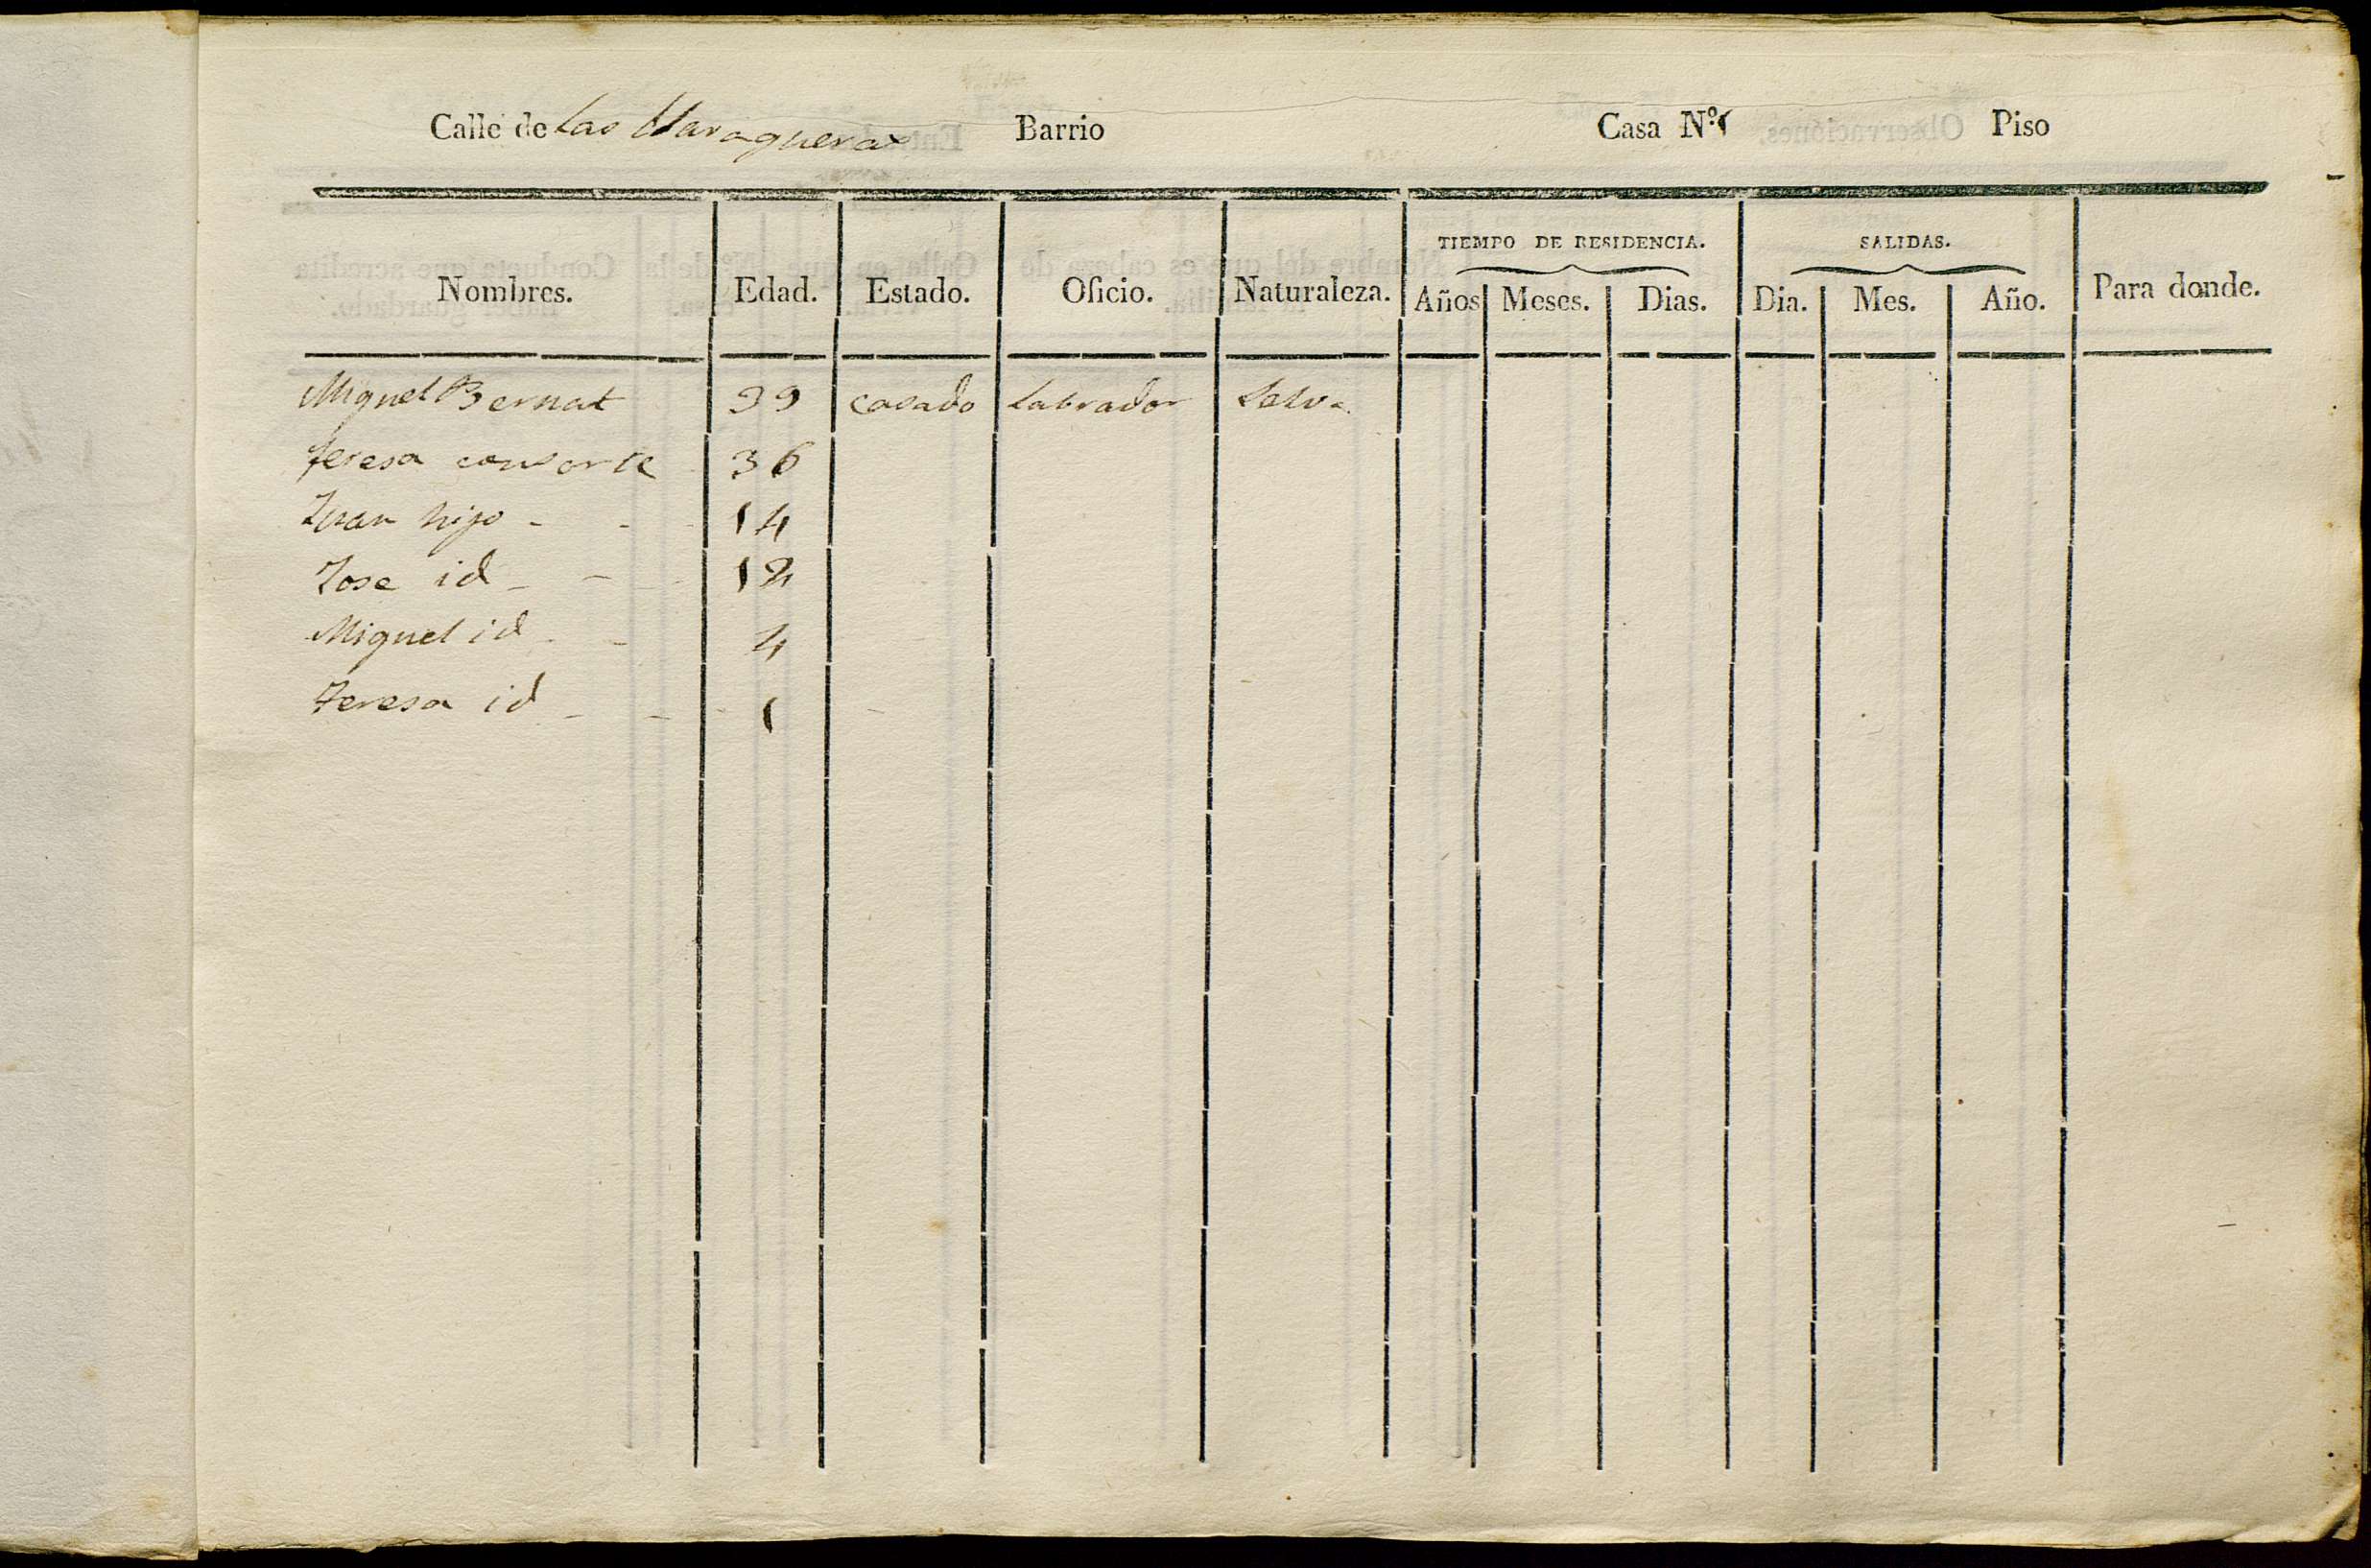 Calle de Las Baraqueras Barrio Casa N.º 1 Piso
TIEMPO DE RESIDENCIA. SALIDAS.
Nombres. Edad. Estado. Oficio. Naturaleza. Años Meses. Dias. Dia. Mes. Año. Para donde.
Miguel Bernat 39 casado Labrador Selva
Teresa consorte 36
Juan hijo - - - 14
Jose id - - - 12
Miguel id - - 4
Teresa id - - - 1